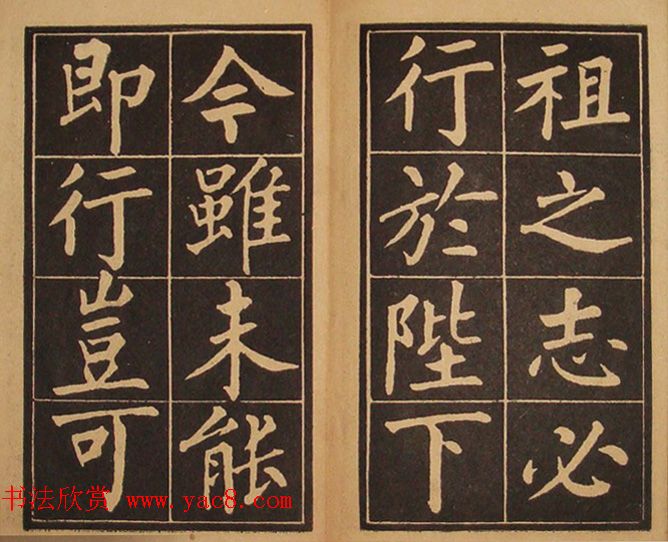 祖之志必
行於陛下
今雖未能
即行豈可
书法欣赏 www.yac8.com